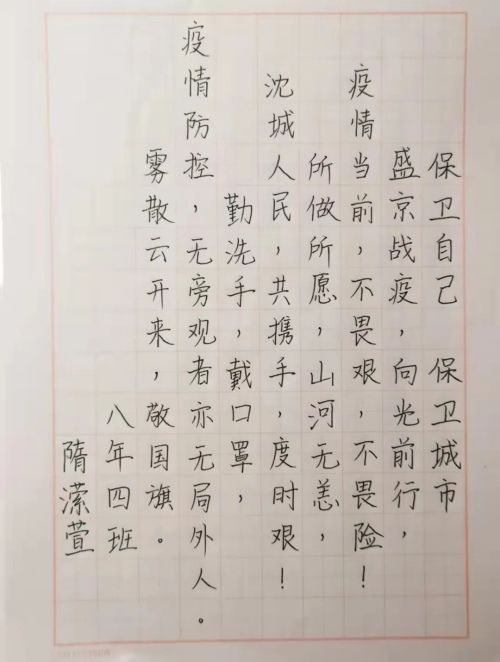 保卫自己 保卫城市
盛京战疫，向光前行，
疫情当前，不畏艰，不畏险！
所做所愿，山河无恙，
沈城人民，共携手，度时艰！
勤洗手，戴口罩，
疫情防控，无旁观者亦无局外人。
雾散云开来，敬国旗。
八年四班
隋潆萱